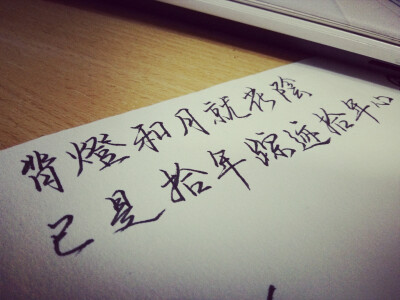 背燈和月就花陰
已是拾年踪迹拾年心